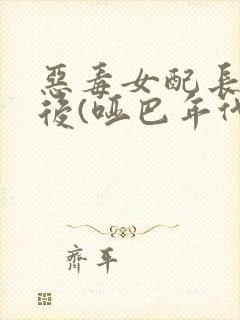 惡毒女配長
後(啞巴年代
齊平